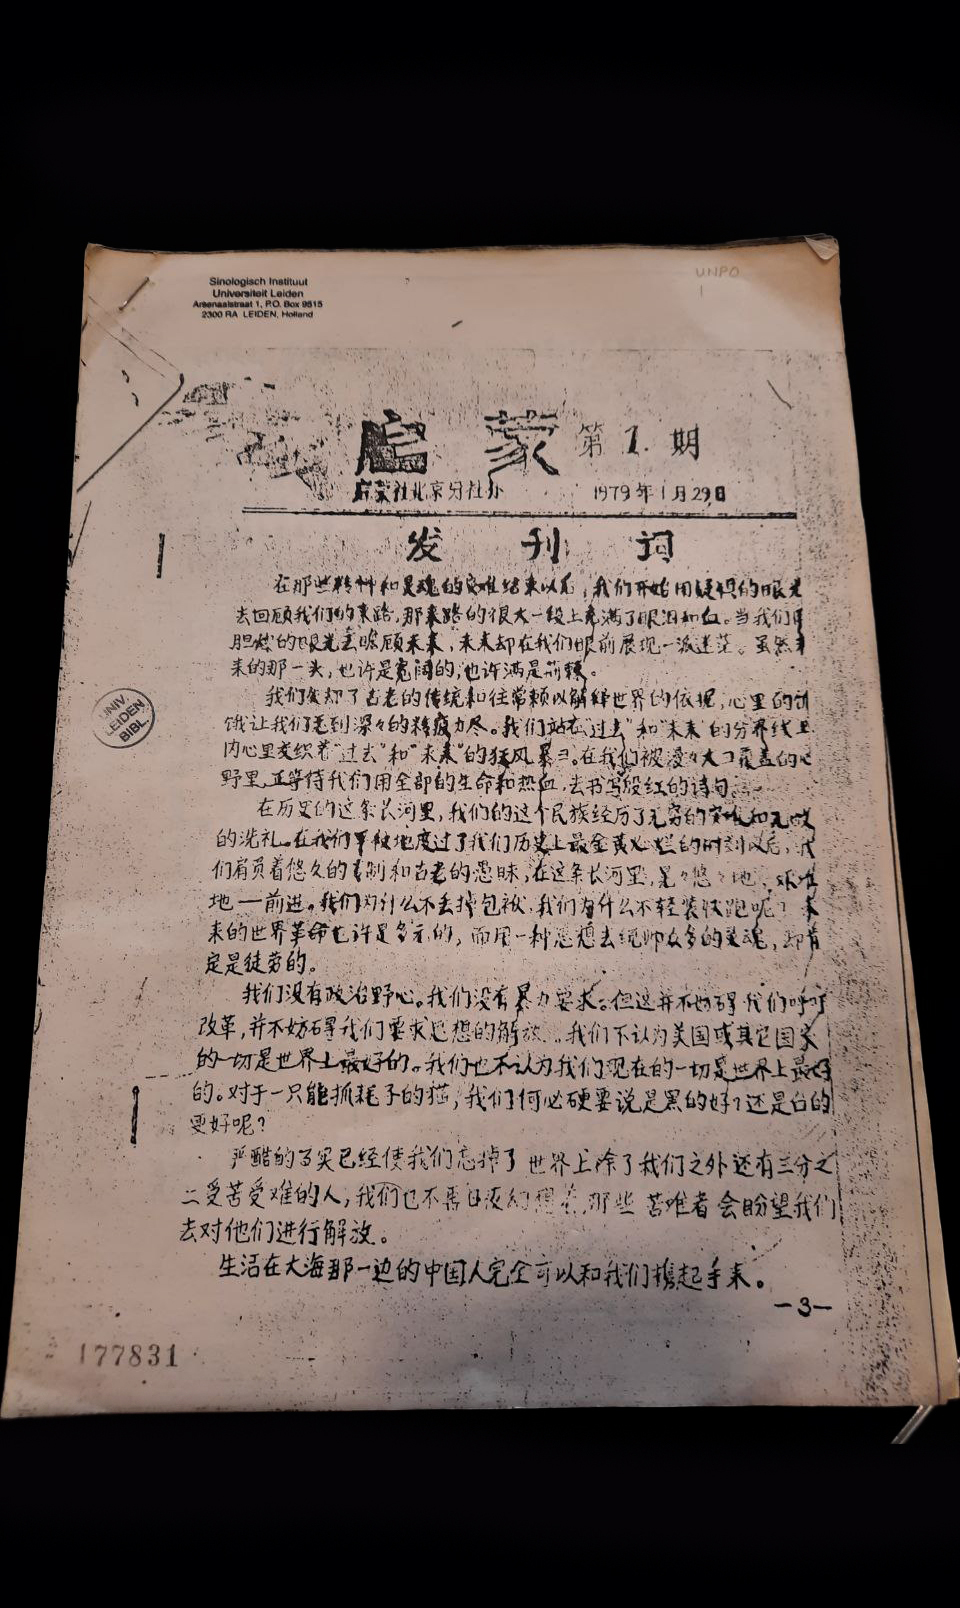 Sinologisch Instituut
Universiteit Leiden
Arsenaalstraat 1, P.O. Box 9515
2300 RA LEIDEN, Holland
UNPO
启 蒙 第1.期
启蒙社北京分社办 1979年1月29日
发 刊 词
在那些精神和灵魂的灾难结束以后，我们开始用疑惧的眼光
去回顾我们的来路，那来路的很大一段上充满了眼泪和血。当我们用
胆怯的眼光去瞻顾未来，未来却在我们眼前展现一派迷茫。虽然未
来的那一头，也许是宽阔的，也许满是荊棘。
我们失却了古老的传统和往常赖以解释世界的依据，心里的饥
饿让我们感到深々的精疲力尽。我们站在"过去"和"未来"的分界线上
内心里交织着"过去"和"未来"的狂风暴
在我们被 覆盖的心
野里，正等待我们用全部的生命和热血，去书写殷红的诗句。
在历史的这条长河里，我们的这个民族经历了无穷的灾难和无数
的洗礼。在我们 地度过了我们历史上最金黄 的时刻以后，我
们肩负着悠久的专制和古老的愚昧，在这条长河里， 悠 地、艰难
地一前进。我们为什么不丢掉包袱，我们为什么不轻装 跑呢？未
来的世界革命也许是多元的，而用一种思想去统帅众多的灵魂，却肯
定是徒劳的。
我们没有政治野心。我们没有暴力要求。但这并不妨碍我们呼吁
改革，并不妨碍我们要求思想的解放。我们不认为美国或其它国家
的一切是世界上最好的。我们也不认为我们现在的一切是世界上最好
的。对于一只能抓耗子的猫，我们何必硬要说是黑的好？还是白的
更好呢？
严酷的事实已经使我们忘掉了世界上除了我们之外还有三分之
二受苦受难的人，我们也不再日夜幻想着那些苦难者会盼望我们
去对他们进行解放。
生活在大海那一边的中国人完全可以和我们携起手来。
—3—
UNIV.
LEIDEN
BIBL.
177831